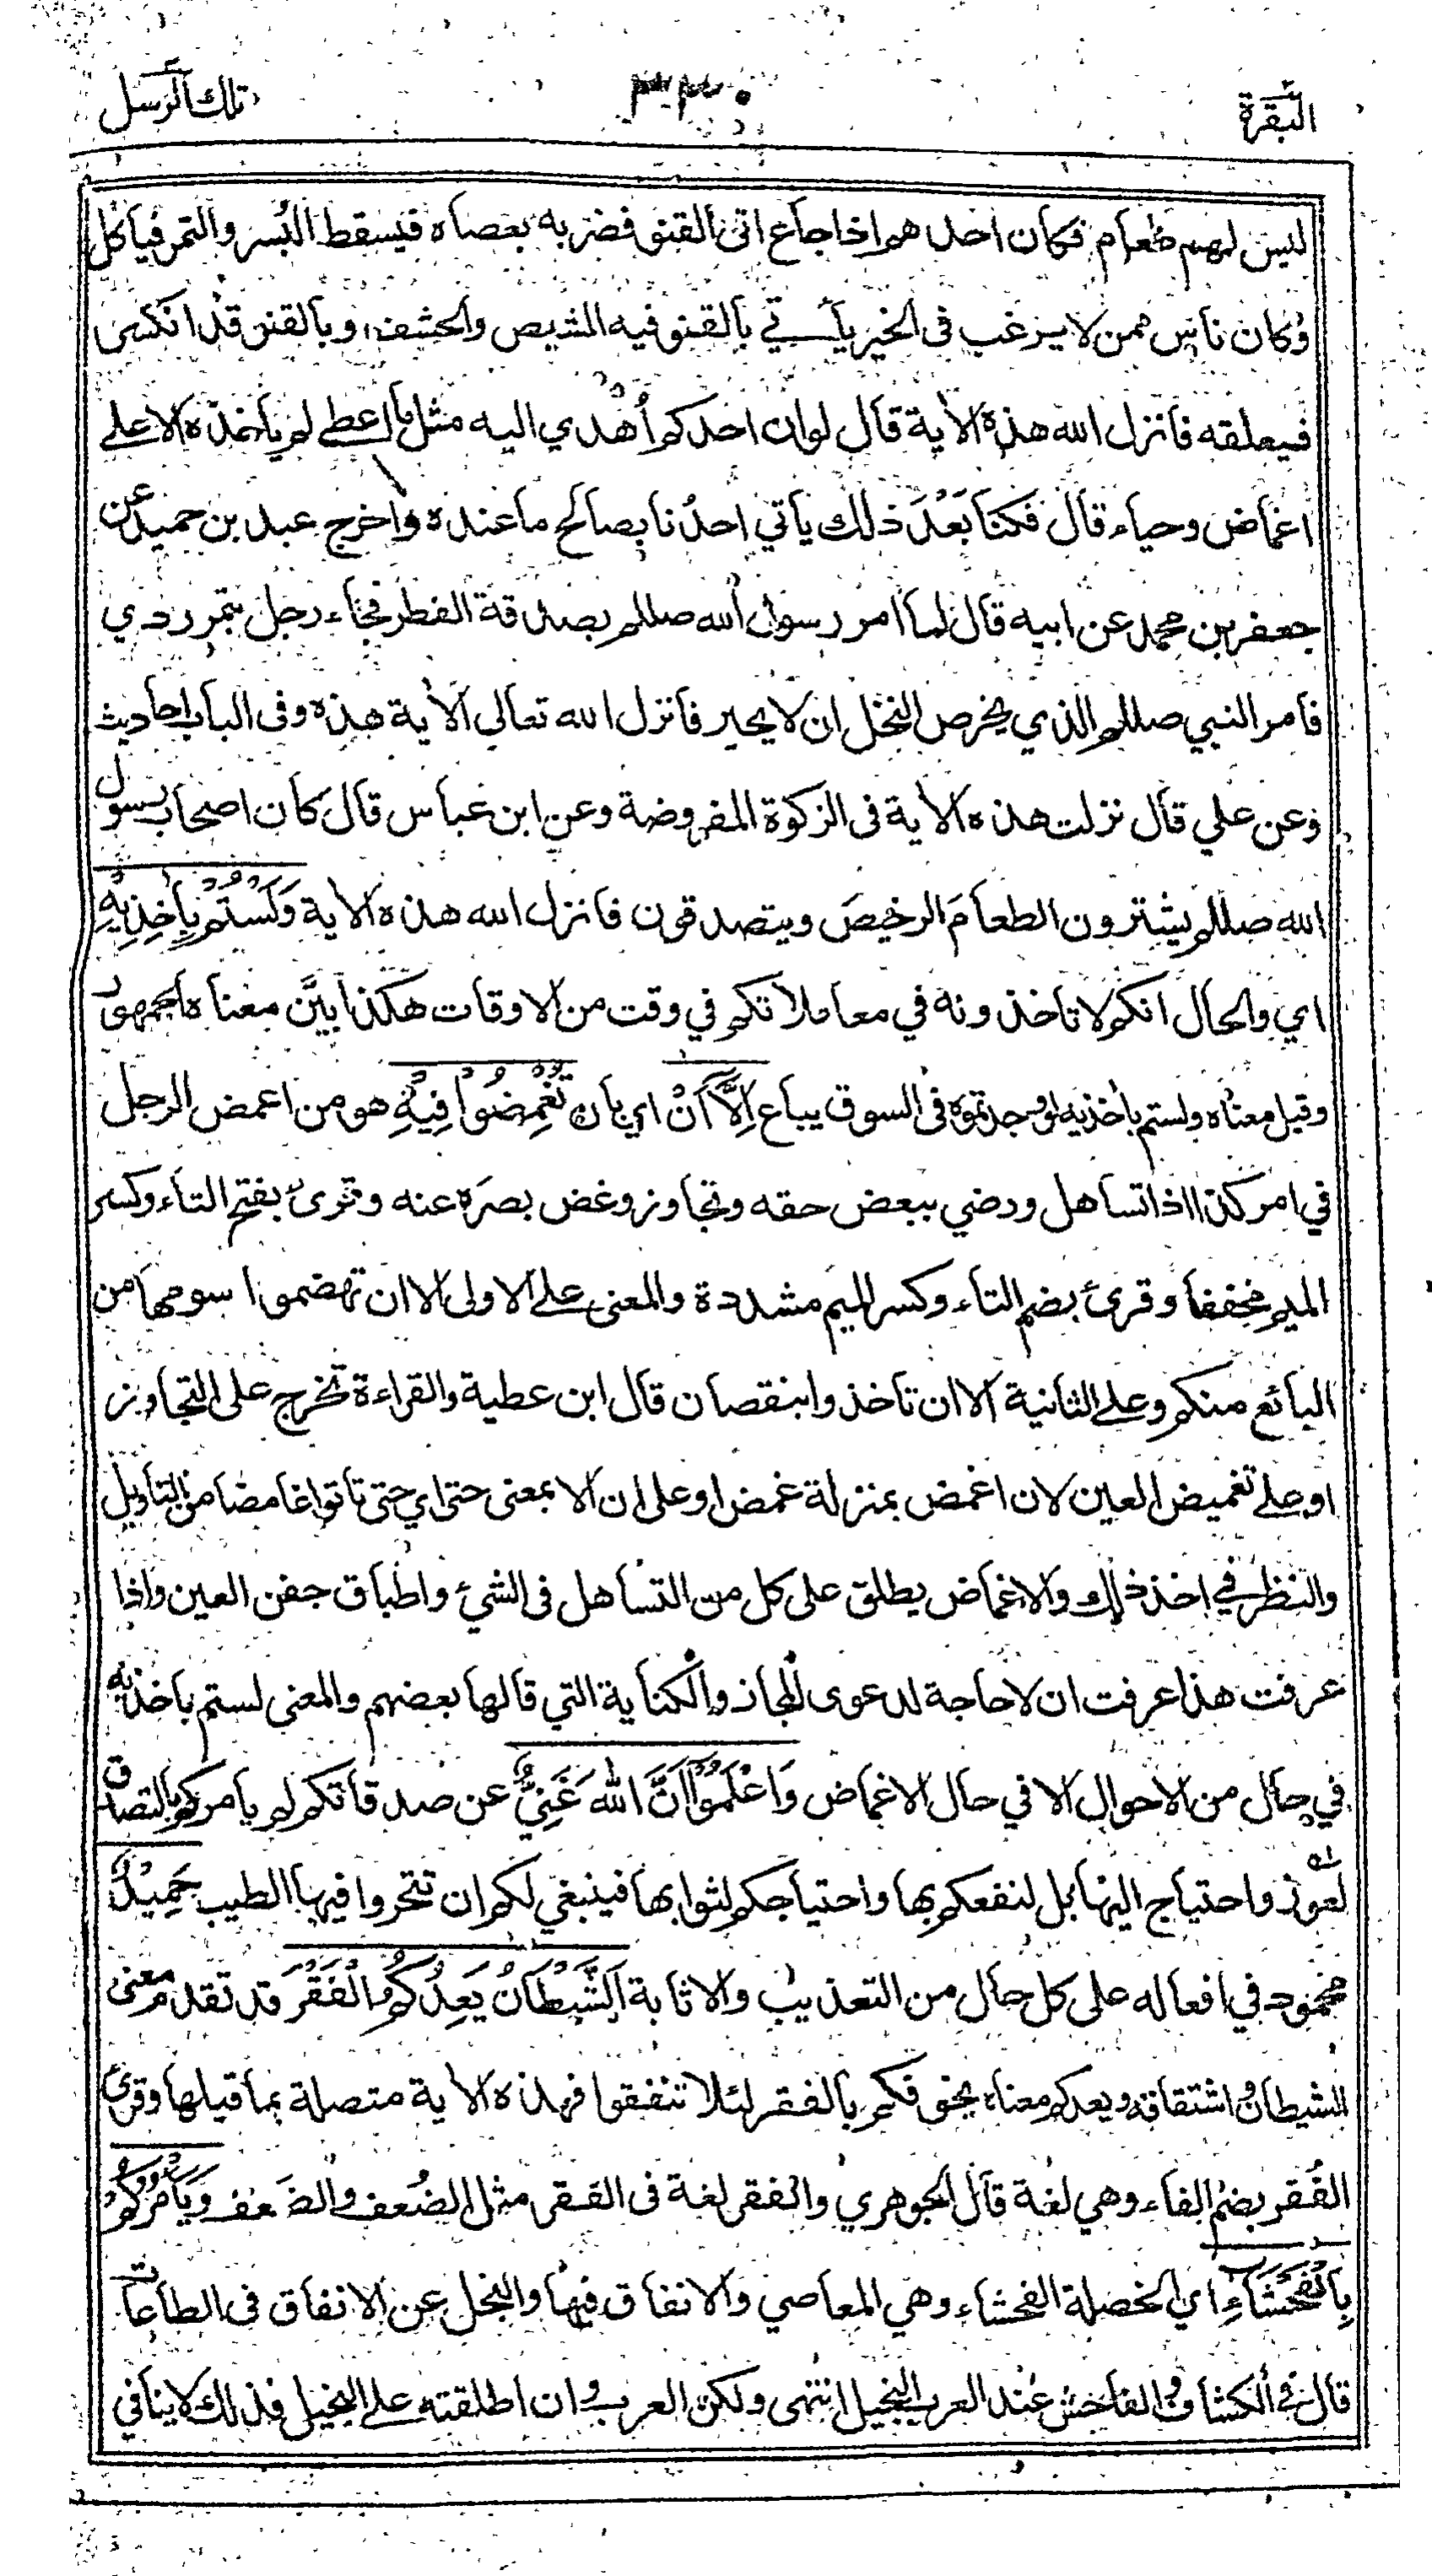 البقرة
٣٣٠
تلك الرسل
ليس لهم طعام فكان احدهم اذا جاع اتى القنو فضربه بعصاه فيسقط البُسر والتمر فياكل
وكان ناس ممن لا يرغب فى الخير يأتي بالقنو فيه الشيص والحشف وبالقنو قد انكسر
فيعلقه فانزل الله هذه الأية قال لو ان احدكم أُهدي اليه مثل ما اعطى لم يأخذه الا على
اغماض وحياء قال فكنا بَعْدَ ذلك يأتي احدُنا بصالح ما عنده واخرج عبد بن حميد عن
جعفر بن محمد عن ابيه قال لما امر رسول الله صللم بصدقة الفطر فجاء رجل بتمر ردي
فامر النبي صللم الذي يخرص النخل ان لا يجيز فانزل الله تعالى الأية هذه وفى الباب احاديث
وعن علي قال نزلت هذه الأية فى الزكوة المفروضة وعن ابن عباس قال كان اصحاب رسول
الله صللم يشترون الطعامَ الرخيصَ ويتصدقون فانزل الله هذه الأية وَلَسْتُمْ بِاٰخِذِيْهِ
اي والحال انكم لا تأخذونه في معاملاتكم في وقت من الاوقات هكذا بيَّن معناه الجمهور
وقيل معناه ولستم بأخذيه لو وجدتموه فى السوق يباع اِلَّآ اَنْ اي بان تُغْمِضُوْا فِيْهِ هو من اغمض الرجل
في امر كذا اذا تساهل ورضي ببعض حقه وتجاوز وغض بصره عنه وقرئ بفتح التاء وكسر
الميم مخففا وقرئ بضم التاء وكسر الميم مشددة والمعنى على الاولى الا ان تهضموا سومها من
البائع منكم وعلى الثانية الا ان تاخذوا بنقصان قال ابن عطية والقراءة تخرج على التجاوز
او على تغميض العين لان اغمض بمنزلة غمض او على ان الا بمعنى حتى اي حتى تاتوا غامضا من التأويل
والنظر في اخذ ذلك والاغماض يطلق على كل من التساهل فى الشئ واطباق جفن العين واذا
عرفت هذا عرفت ان لا حاجة لدعوى المجاز والكناية التي قالها بعضهم والمعنى لستم بأخذيه
في حال من الاحوال الا في حال الاغماض وَاعْلَمُوْٓا اَنَّ اللهَ غَنِيٌّ عن صدقاتكم لم يأمركم بالتصدق
لعوز واحتياج اليها بل لنفعكم بها واحتياجكم لثوابها فينبغي لكم ان تتحروا فيها الطيب حَمِيْدٌ
محمود في افعاله على كل حال من التعذيب والاثابة اَلشَّيْطَانُ يَعِدُكُمُ الْفَقْرَ قد تقدم معنى
الشيطان واشتقاقه ويعدكم معناه يخوفكم بالفقر لئلا تنفقوا فهذه الأية متصلة بما قبلها وقرئ
الفُقر بضم الفاء وهي لغة قال الجوهري والفقر لغة فى الفقر مثل الضُعف والضَعف وَيَأْمُرُكُمْ
بِالْفَحْشَآءِ اي الخصلة الفحشاء وهي المعاصي والانفاق فيها والبخل عن الانفاق فى الطاعات
قال فى الكشاف والفاحش عند العرب البخيل انتهى ولكن العرب وان اطلقته على البخيل فذلك لا ينافي